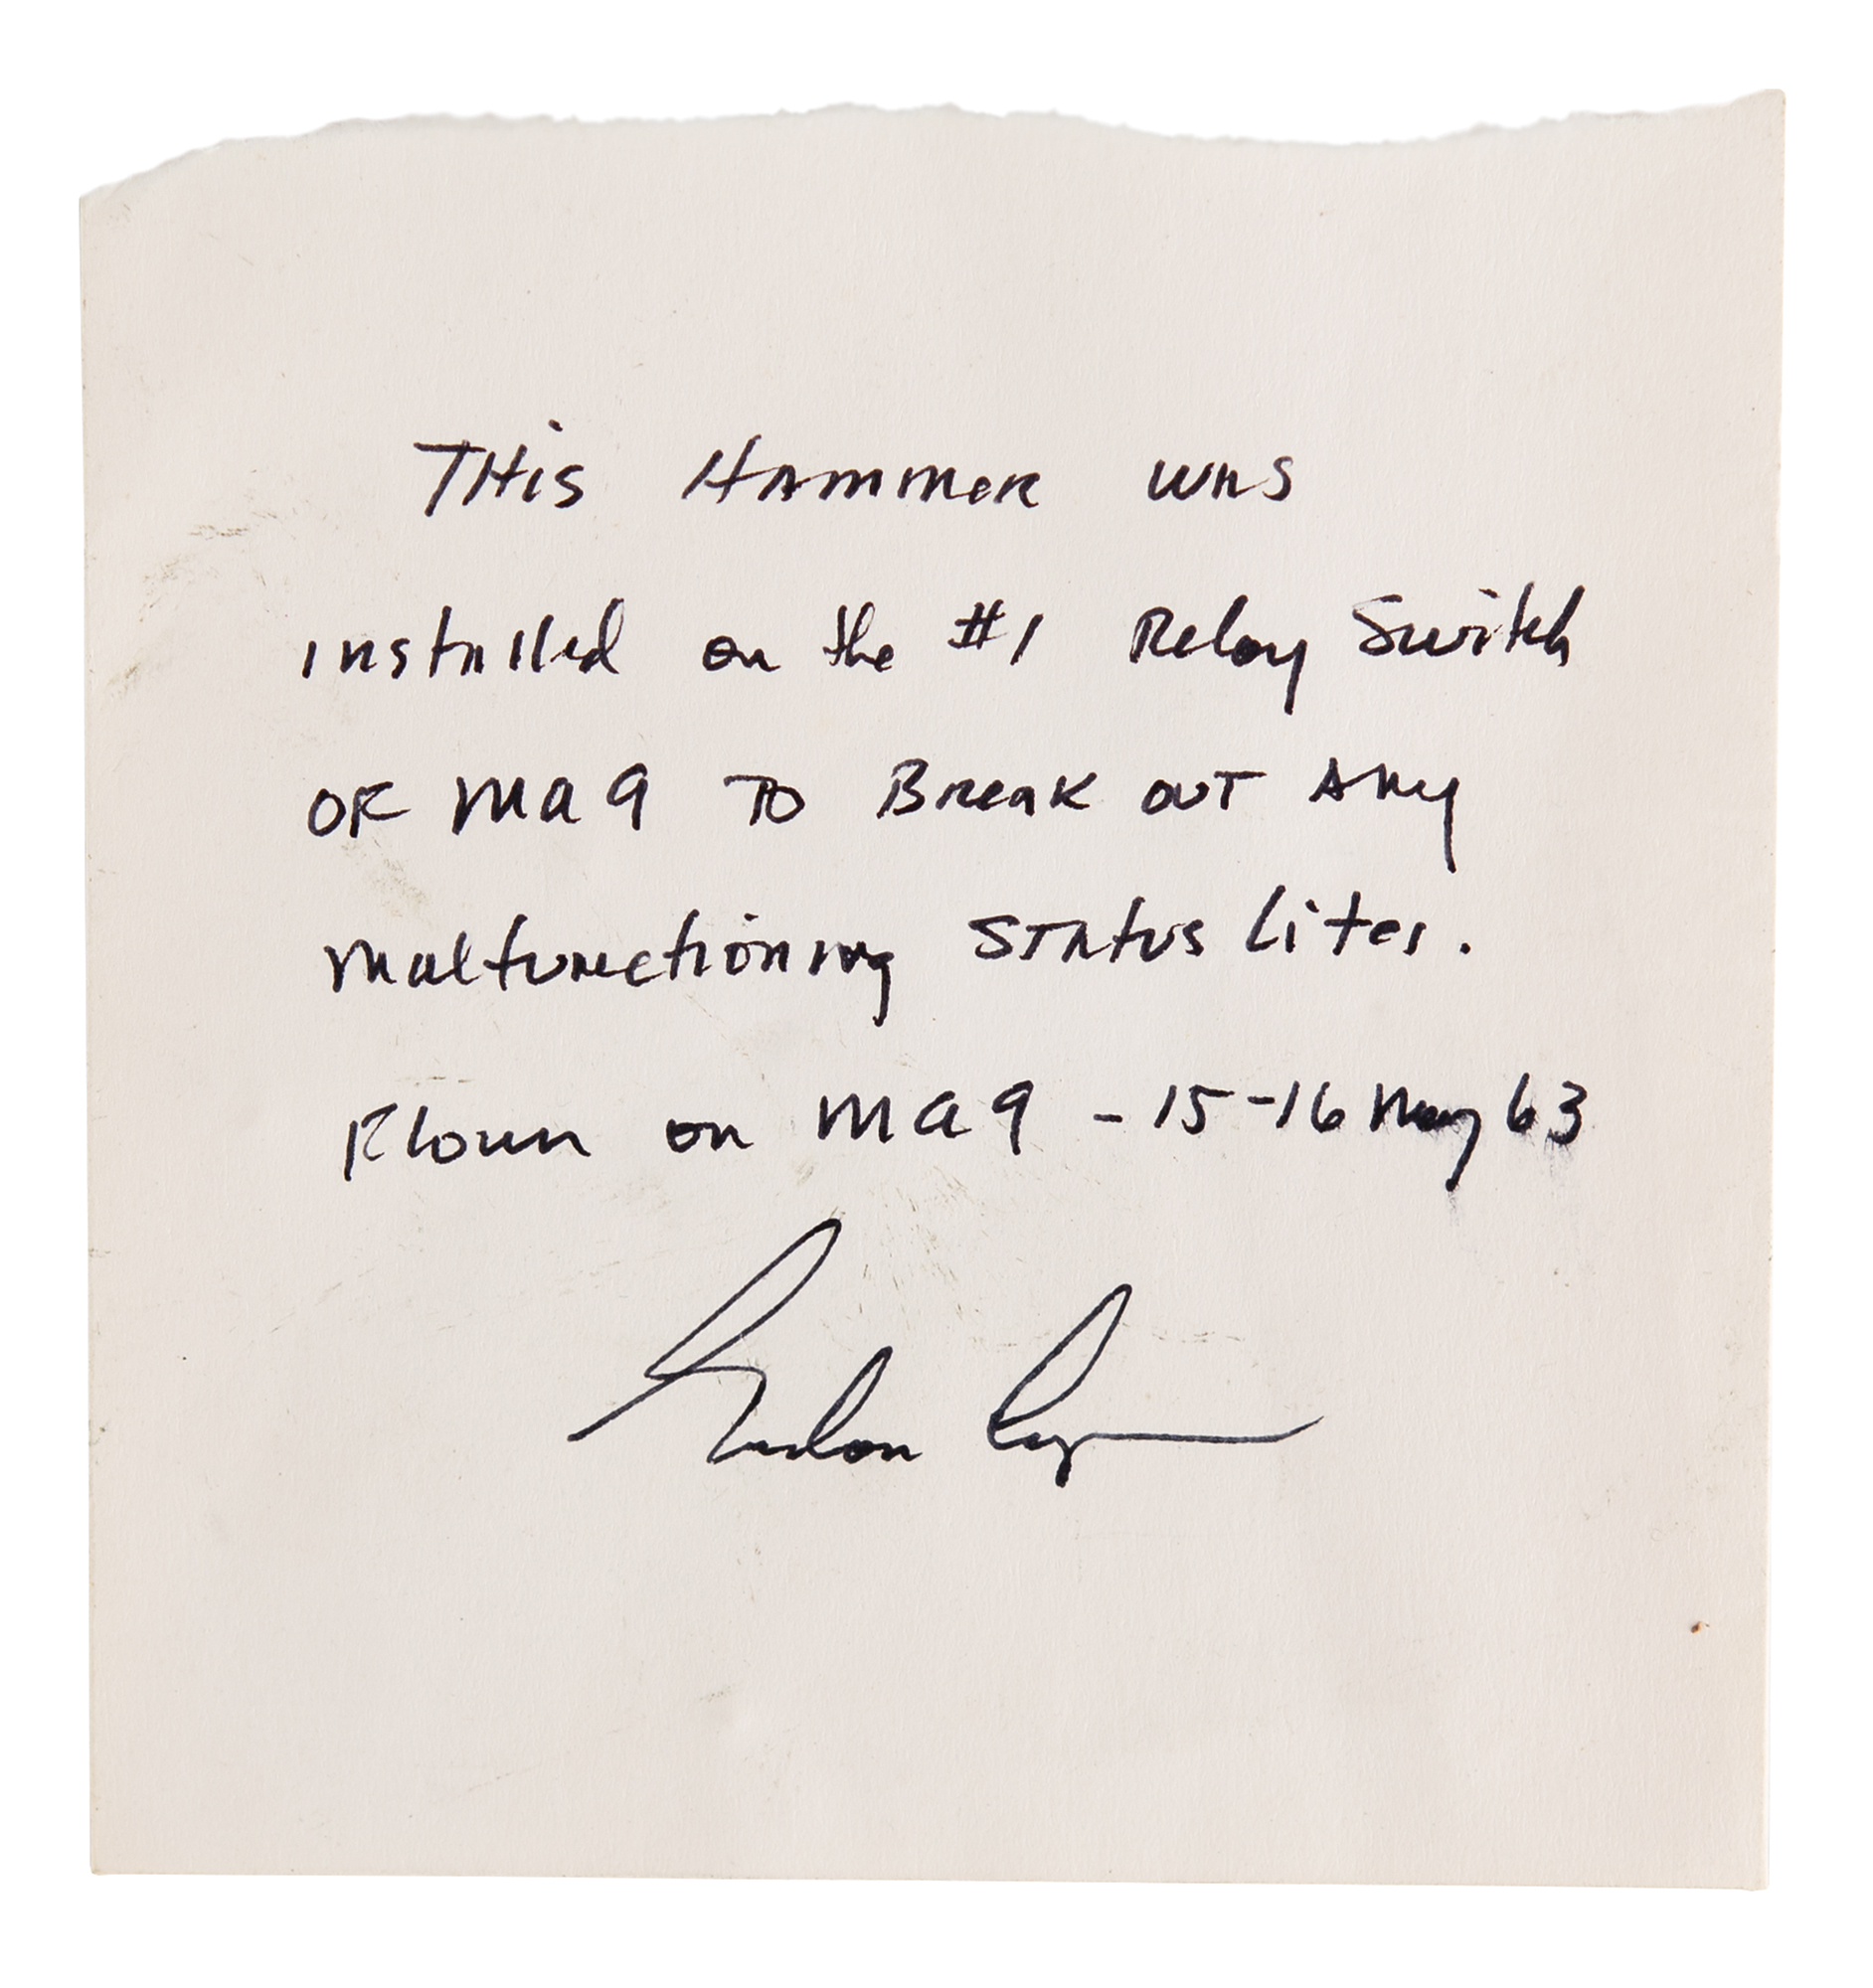 THis Hammer was
installed on the #1 Relay Switch
OF MA 9 TO Break OUT Any
malfunctioning Status lites.
Flown on MA 9 - 15-16 May 63
Gordon Cooper